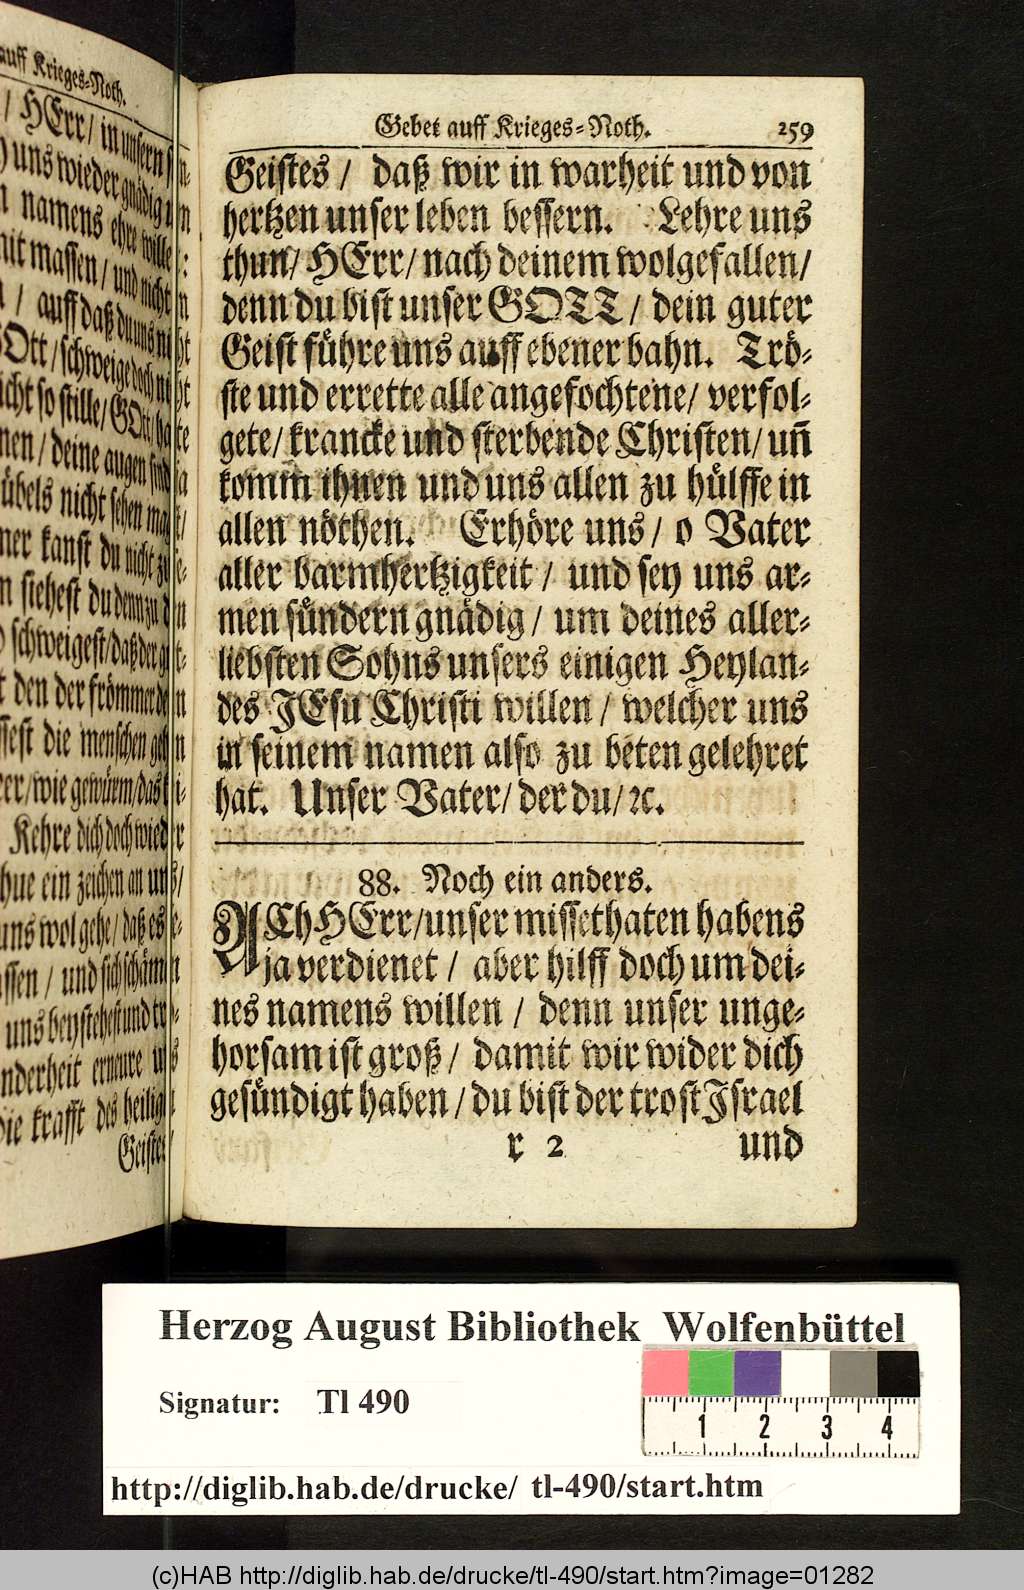 auff Krieges-Noth.
/ HErr/ in unsern
uns wieder gnädig
namens ehre wille
mit massen / und nicht
/ auff daß du uns
GOtt/ schweige doch
nicht so stille/ GOtt/
/ deine augen sind
übels nicht sehen
kanst du nicht zu
siehest du denn zu
schweigest/ daß der
den der frömmer
die menschen
/ wie gewürm/ das
Kehre dich doch wied
ein zeichen an
uns wol gehe/ daß es
/ und sich schämen
uns beystehest und
erneure
die krafft des heilig
Geistes
Gebet auff Krieges-Noth. 259
Geistes / daß wir in warheit und von
hertzen unser leben bessern. Lehre uns
thun/ HErr/ nach deinem wolgefallen/
denn du bist unser GOTT / dein guter
Geist führe uns auff ebener bahn. Trö-
ste und errette alle angefochtene/ verfol-
gete/ krancke und sterbende Christen/ uñ
komm ihnen und uns allen zu hülffe in
allen nöthen. Erhöre uns/ o Vater
aller barmhertzigkeit / und sey uns ar-
men sündern gnädig / um deines aller-
liebsten Sohns unsers einigen Heylan-
des JEsu Christi willen / welcher uns
in seinem namen also zu beten gelehret
hat. Unser Vater/ der du/ ꝛc.
88. Noch ein anders.
ACh HErr/ unser missethaten habens
ja verdienet / aber hilff doch um dei-
nes namens willen / denn unser unge-
horsam ist groß / damit wir wider dich
gesündigt haben / du bist der trost Israel
r 2 und
Herzog August Bibliothek Wolfenbüttel
Signatur: Tl 490
1 2 3 4
http://diglib.hab.de/drucke/ tl-490/start.htm
(c)HAB http://diglib.hab.de/drucke/tl-490/start.htm?image=01282